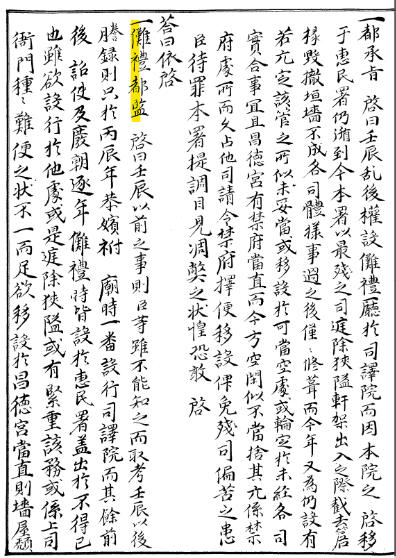 一都承旨 啓曰壬辰亂後權設儺禮廳於司譯院而因本院之 啓移
于惠民署仍循到今本署以最殘之司庭除狹隘軒架出入之際截去簷
椽毀撤垣墻不成各司體樣事過之後僅〻修葺而今年又爲仍設有
若元定該管之所似未妥當或移設於可當空處或輪定於未經各司
實合事宜且昌德宮有禁府當直而今方空閑似不當捨其冗係禁
府處所而久占他司請令禁府擇便移設俾免殘司偏苦之患
臣待罪本署提調目見凋弊之狀惶恐敢 啓
答曰依啓
一儺禮都監 啓曰壬辰以前之事則臣等雖不能知之而取考壬辰以後
謄錄則只於丙辰年恭嬪祔 廟時一番設行司譯院而其餘前
後 詔使及廢朝逐年儺禮時皆設於惠民署盖出於不得已
也雖欲設行於他處或是庭除狹隘或有緊重該務或係上司
衙門種〻難便之狀不一而足欲移設於昌德宮當直則墻屋頹